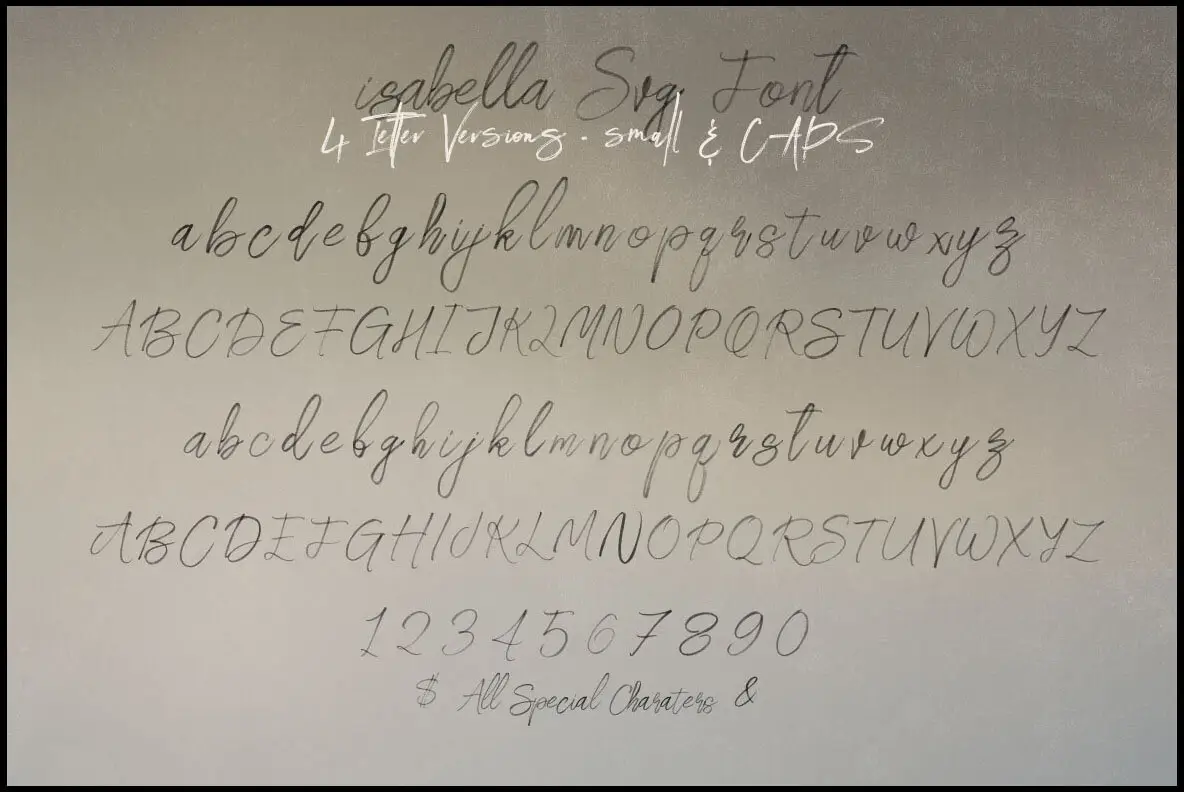 isabella Svg Font
4 Letter Versions - small & CAPS
abcdefghijklmnopqrstuvwxyz
ABCDEFGHIJKLMNOPQRSTUVWXYZ
abcdefghijklmnopqrstuvwxyz
ABCDEFGHIJKLMNOPQRSTUVWXYZ
1234567890
$ All Special Charaters &